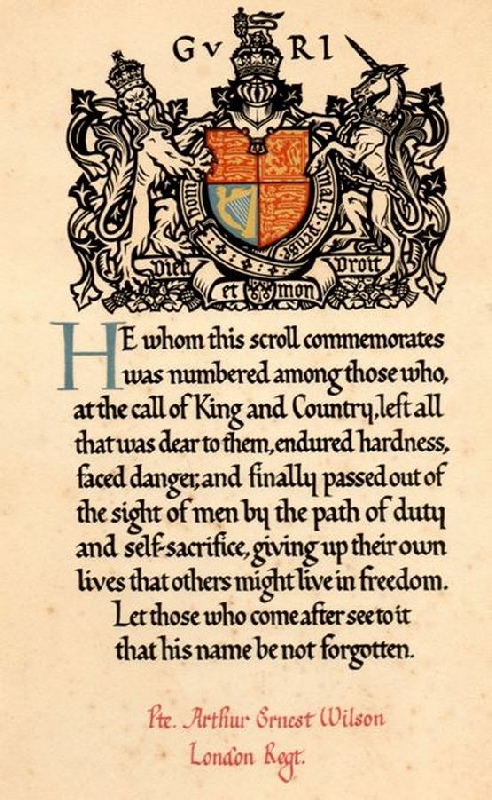 G V R I
Honi soit qui mal y pense
Dieu et mon Droit
HE whom this scroll commemorates
was numbered among those who,
at the call of King and Country, left all
that was dear to them, endured hardness,
faced danger, and finally passed out of
the sight of men by the path of duty
and self-sacrifice, giving up their own
lives that others might live in freedom.
Let those who come after see to it
that his name be not forgotten.
Pte. Arthur Ernest Wilson
London Regt.